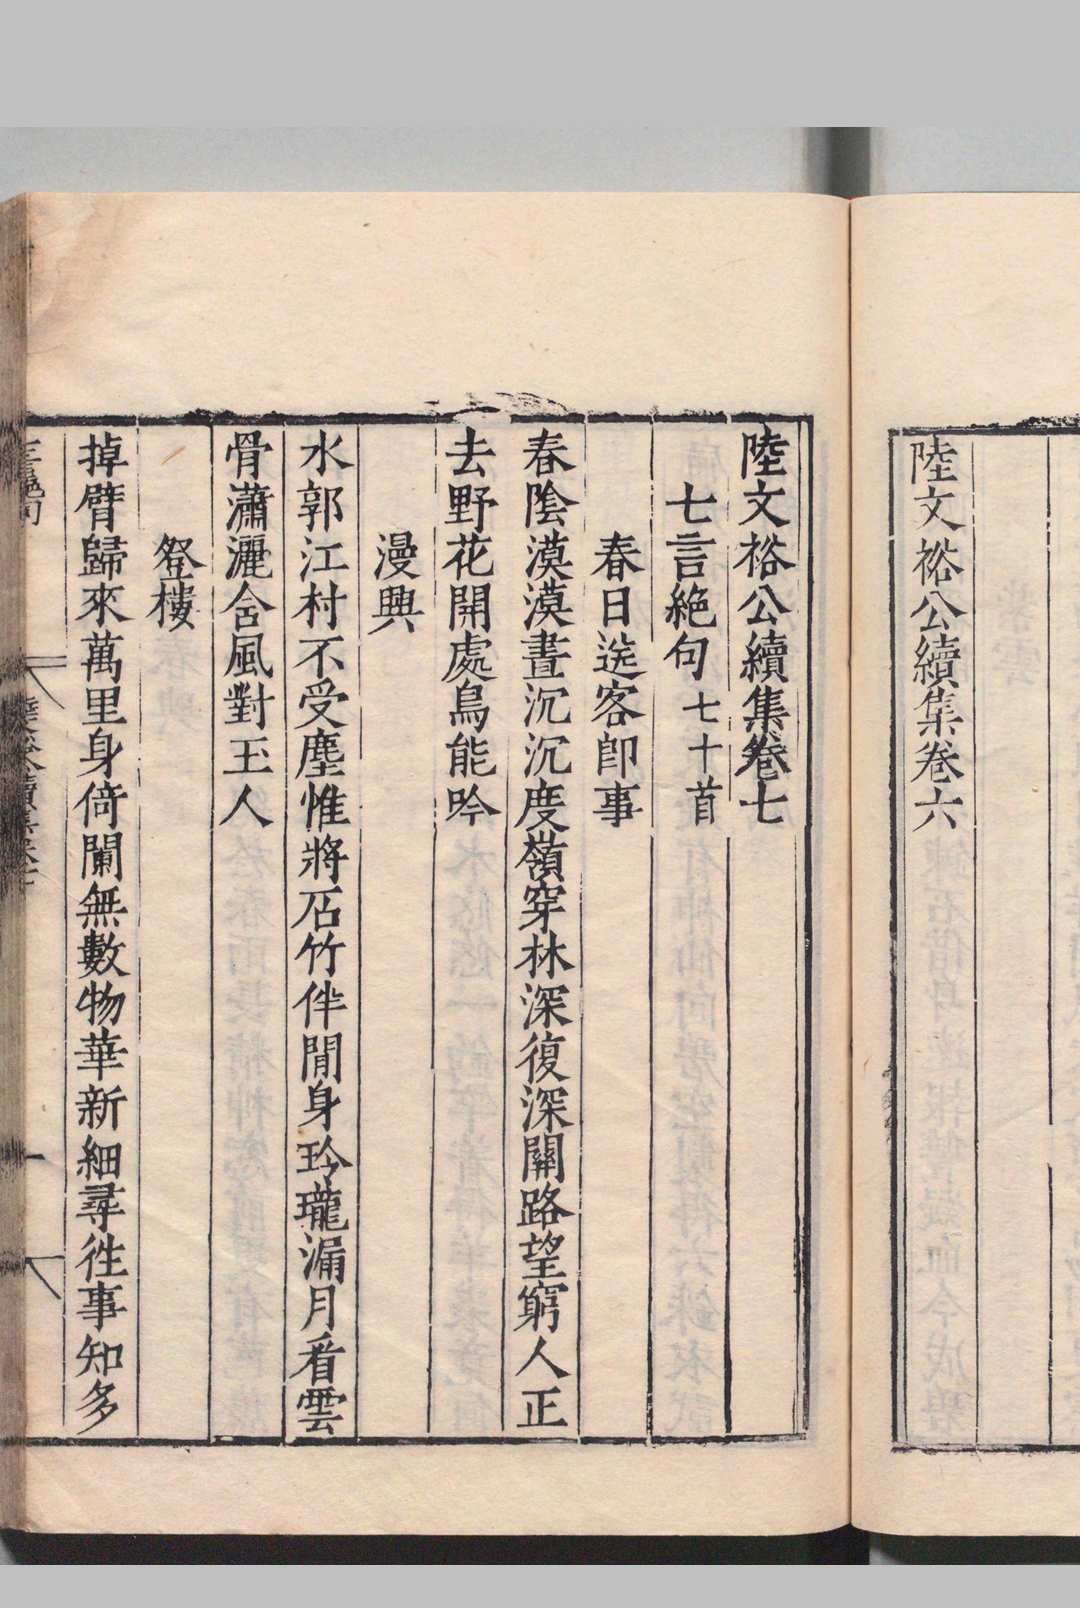 陸文裕公續集卷六
陸文裕公續集卷七
七言絶句七十首
春日送客卽事
春陰漠漠晝沉沉度嶺穿林深復深關路望窮人正
去野花開處鳥能吟
漫興
水郭江村不受塵惟將石竹伴閒身玲瓏漏月看雲
骨瀟灑含風對玉人
登樓
掉臂歸來萬里身倚闌無數物華新細尋徃事知多